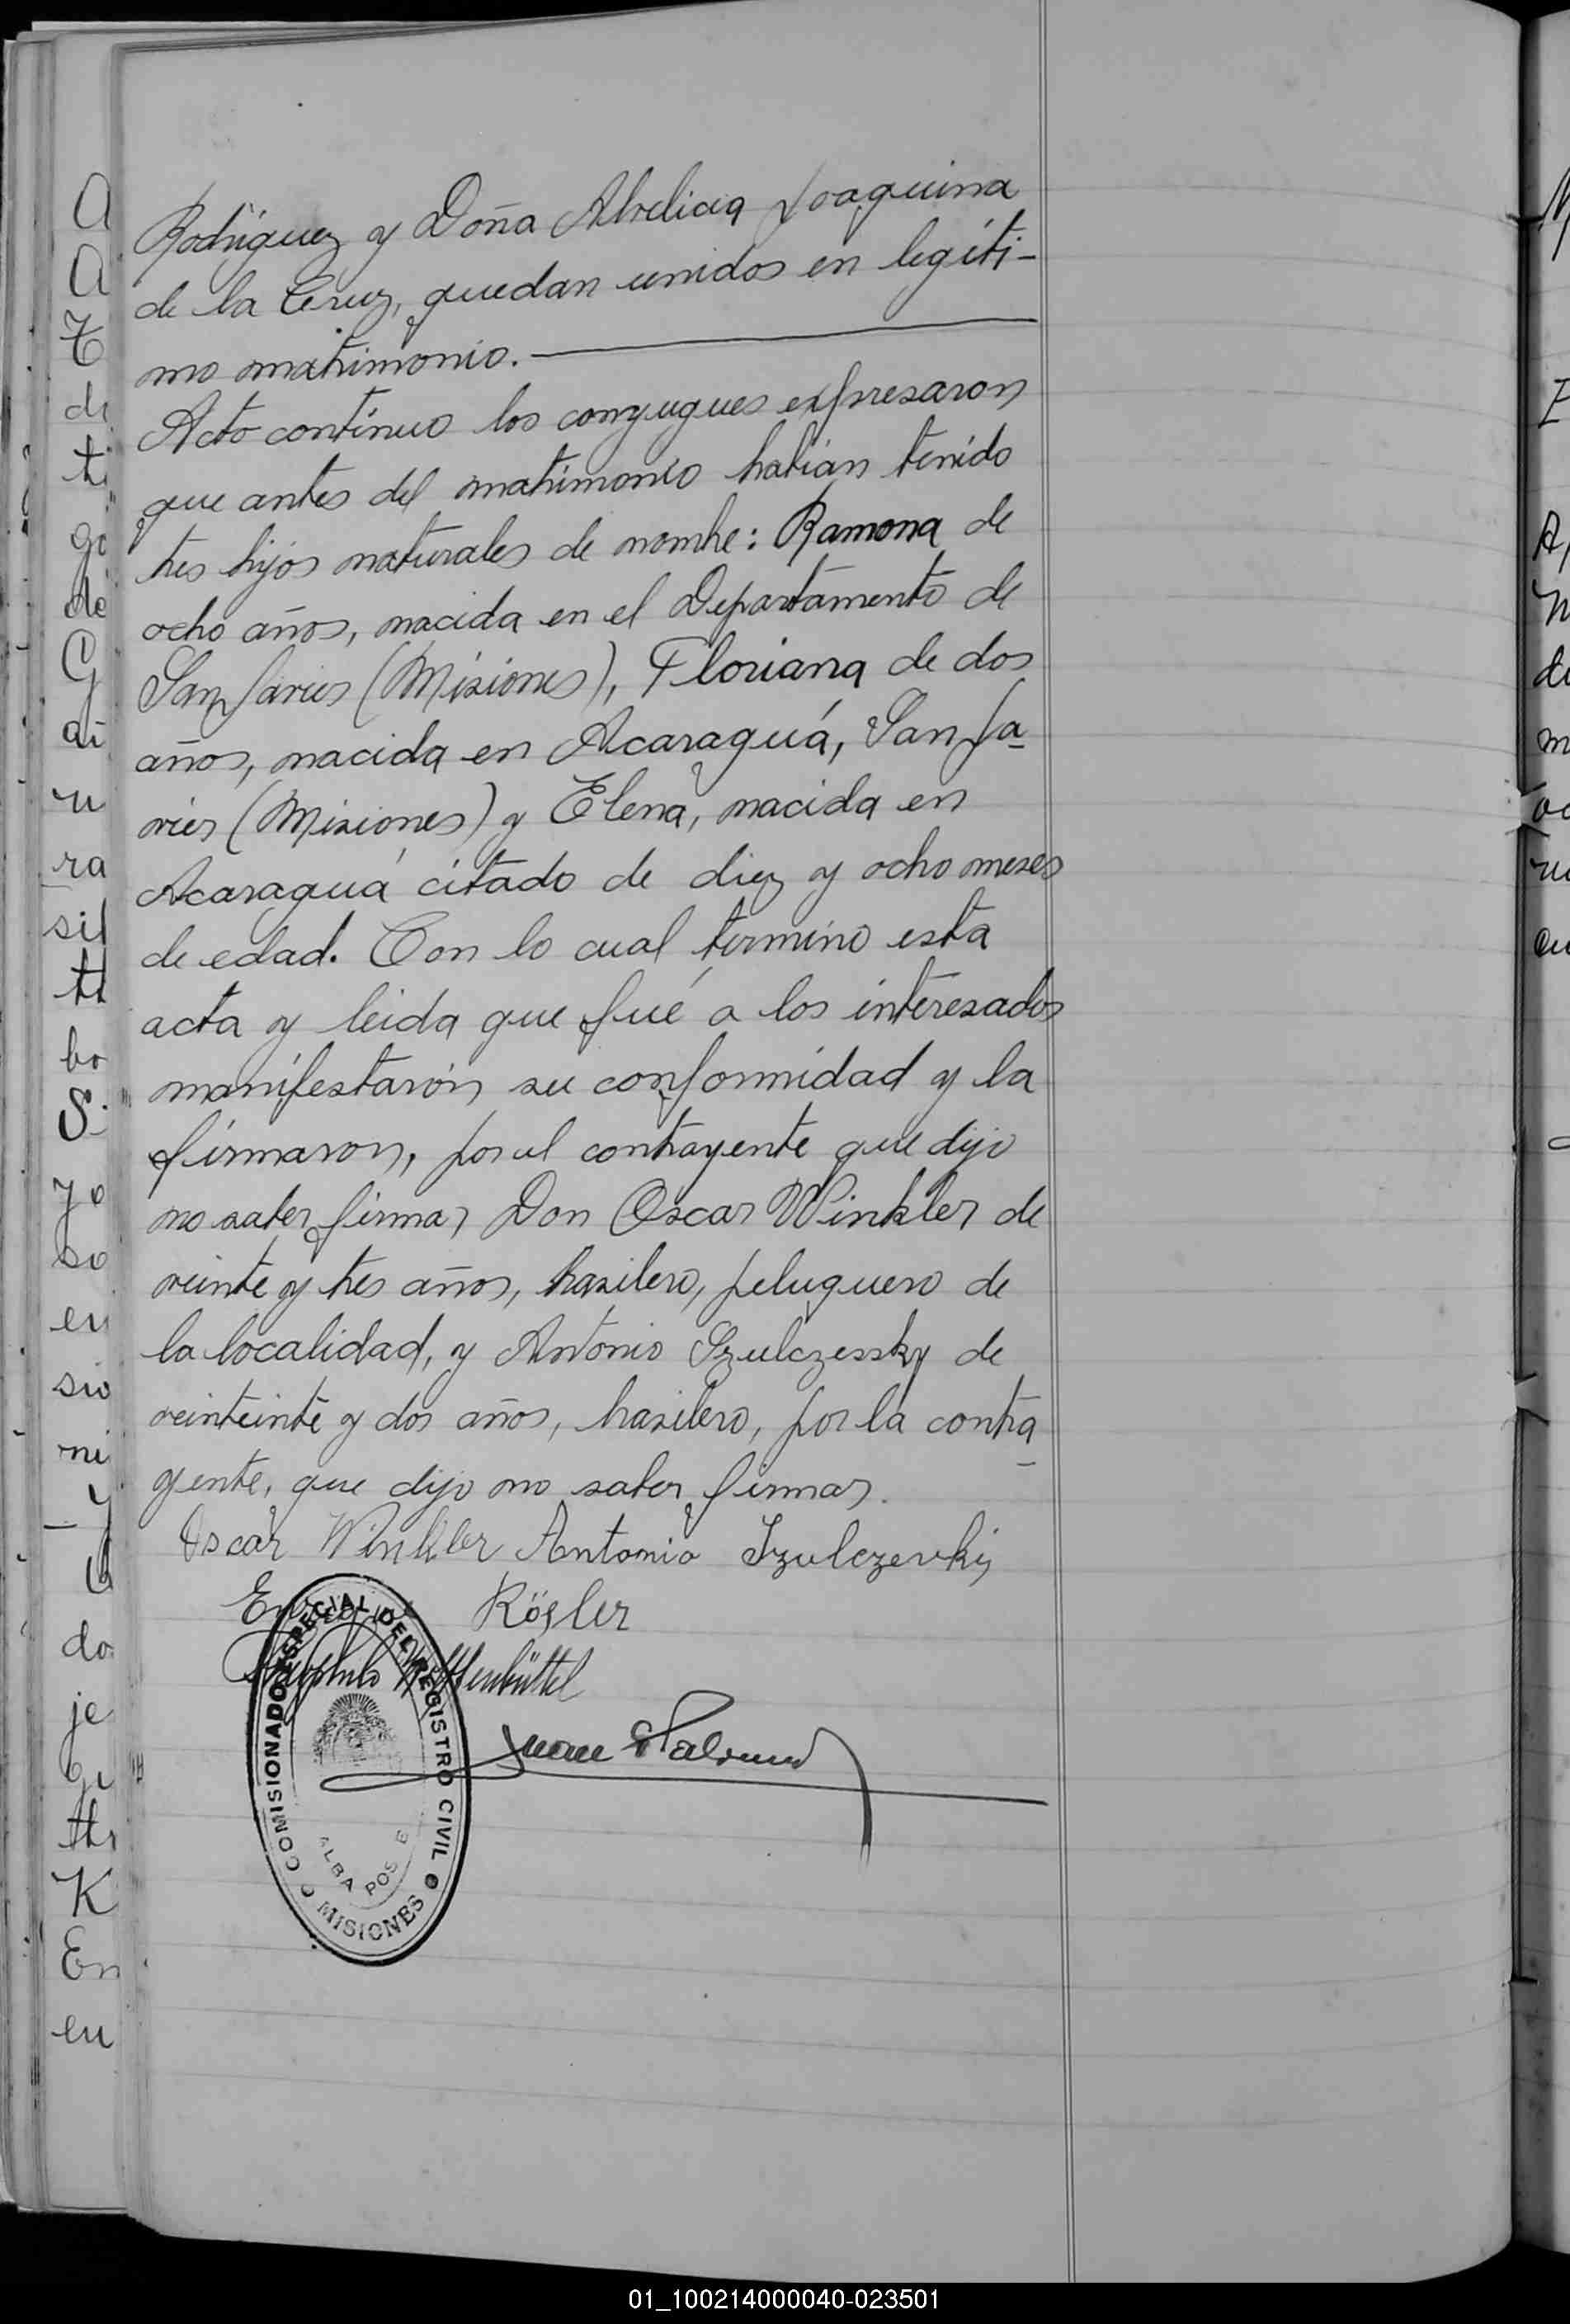 Rodriguez y Doña Abrelicia Joaquina
de la Cruz, quedan unidos en legíti-
mo matrimonio.
Acto contínuo los conyugues expresaron
que antes del matrimonio habian tenido
tres hijos naturales de nombre: Ramona de
ocho años, nacida en el Departamento de
San Javier (Misiones), Floriana de dos
años, nacida en Acaraguá, San Ja-
vier (Misiones) y Elena, nacida en
Acaraguá citado de diez y ocho meses
de edad. Con lo cual termino esta
acta y leida que fué a los interesados
manifestarón su conformidad y la
firmaron, por el contrayente que dijo
no saber firmar Don Oscar Winkler de
veinte y tres años, brasilero, peluquero de
la localidad, y Antonio Szulczessky de
veinteinte y dos años, brasilero, por la contra-
yente, que dijo no saber firmar.
Oscar Winkler Antonio Szulczevki
Rösler
Wolffenbüttel
Juan
COMISIONADO ESPECIAL DEL REGISTRO CIVIL
ALBA POSE
MISIONES
01_100214000040-023501